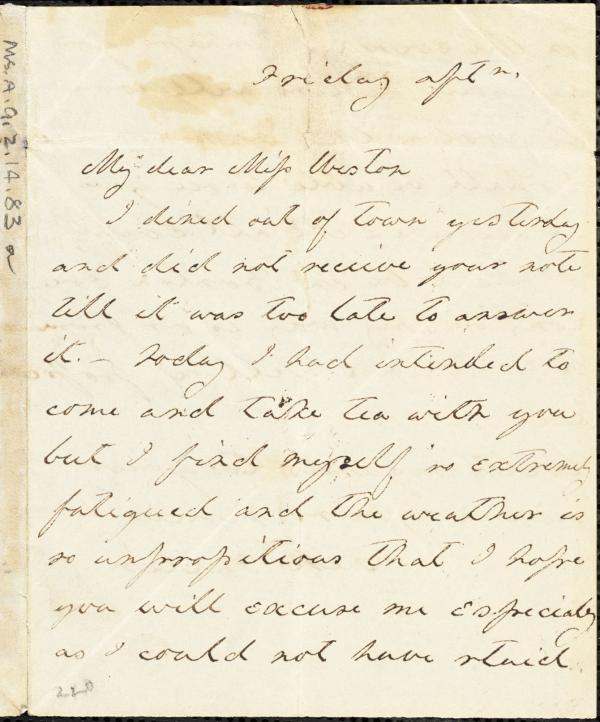 Ms.A.9.2.14.83 a
Friday aftn.
My dear Miss Weston
I dined out of town yesterday
and did not receive your note
till it was too late to answer
it. – Today I had intended to
come and take tea with you
but I find myself so extremely
fatigued and the weather is
so unpropitious that I hope
you will excuse me especialy
as I could not have staid
220